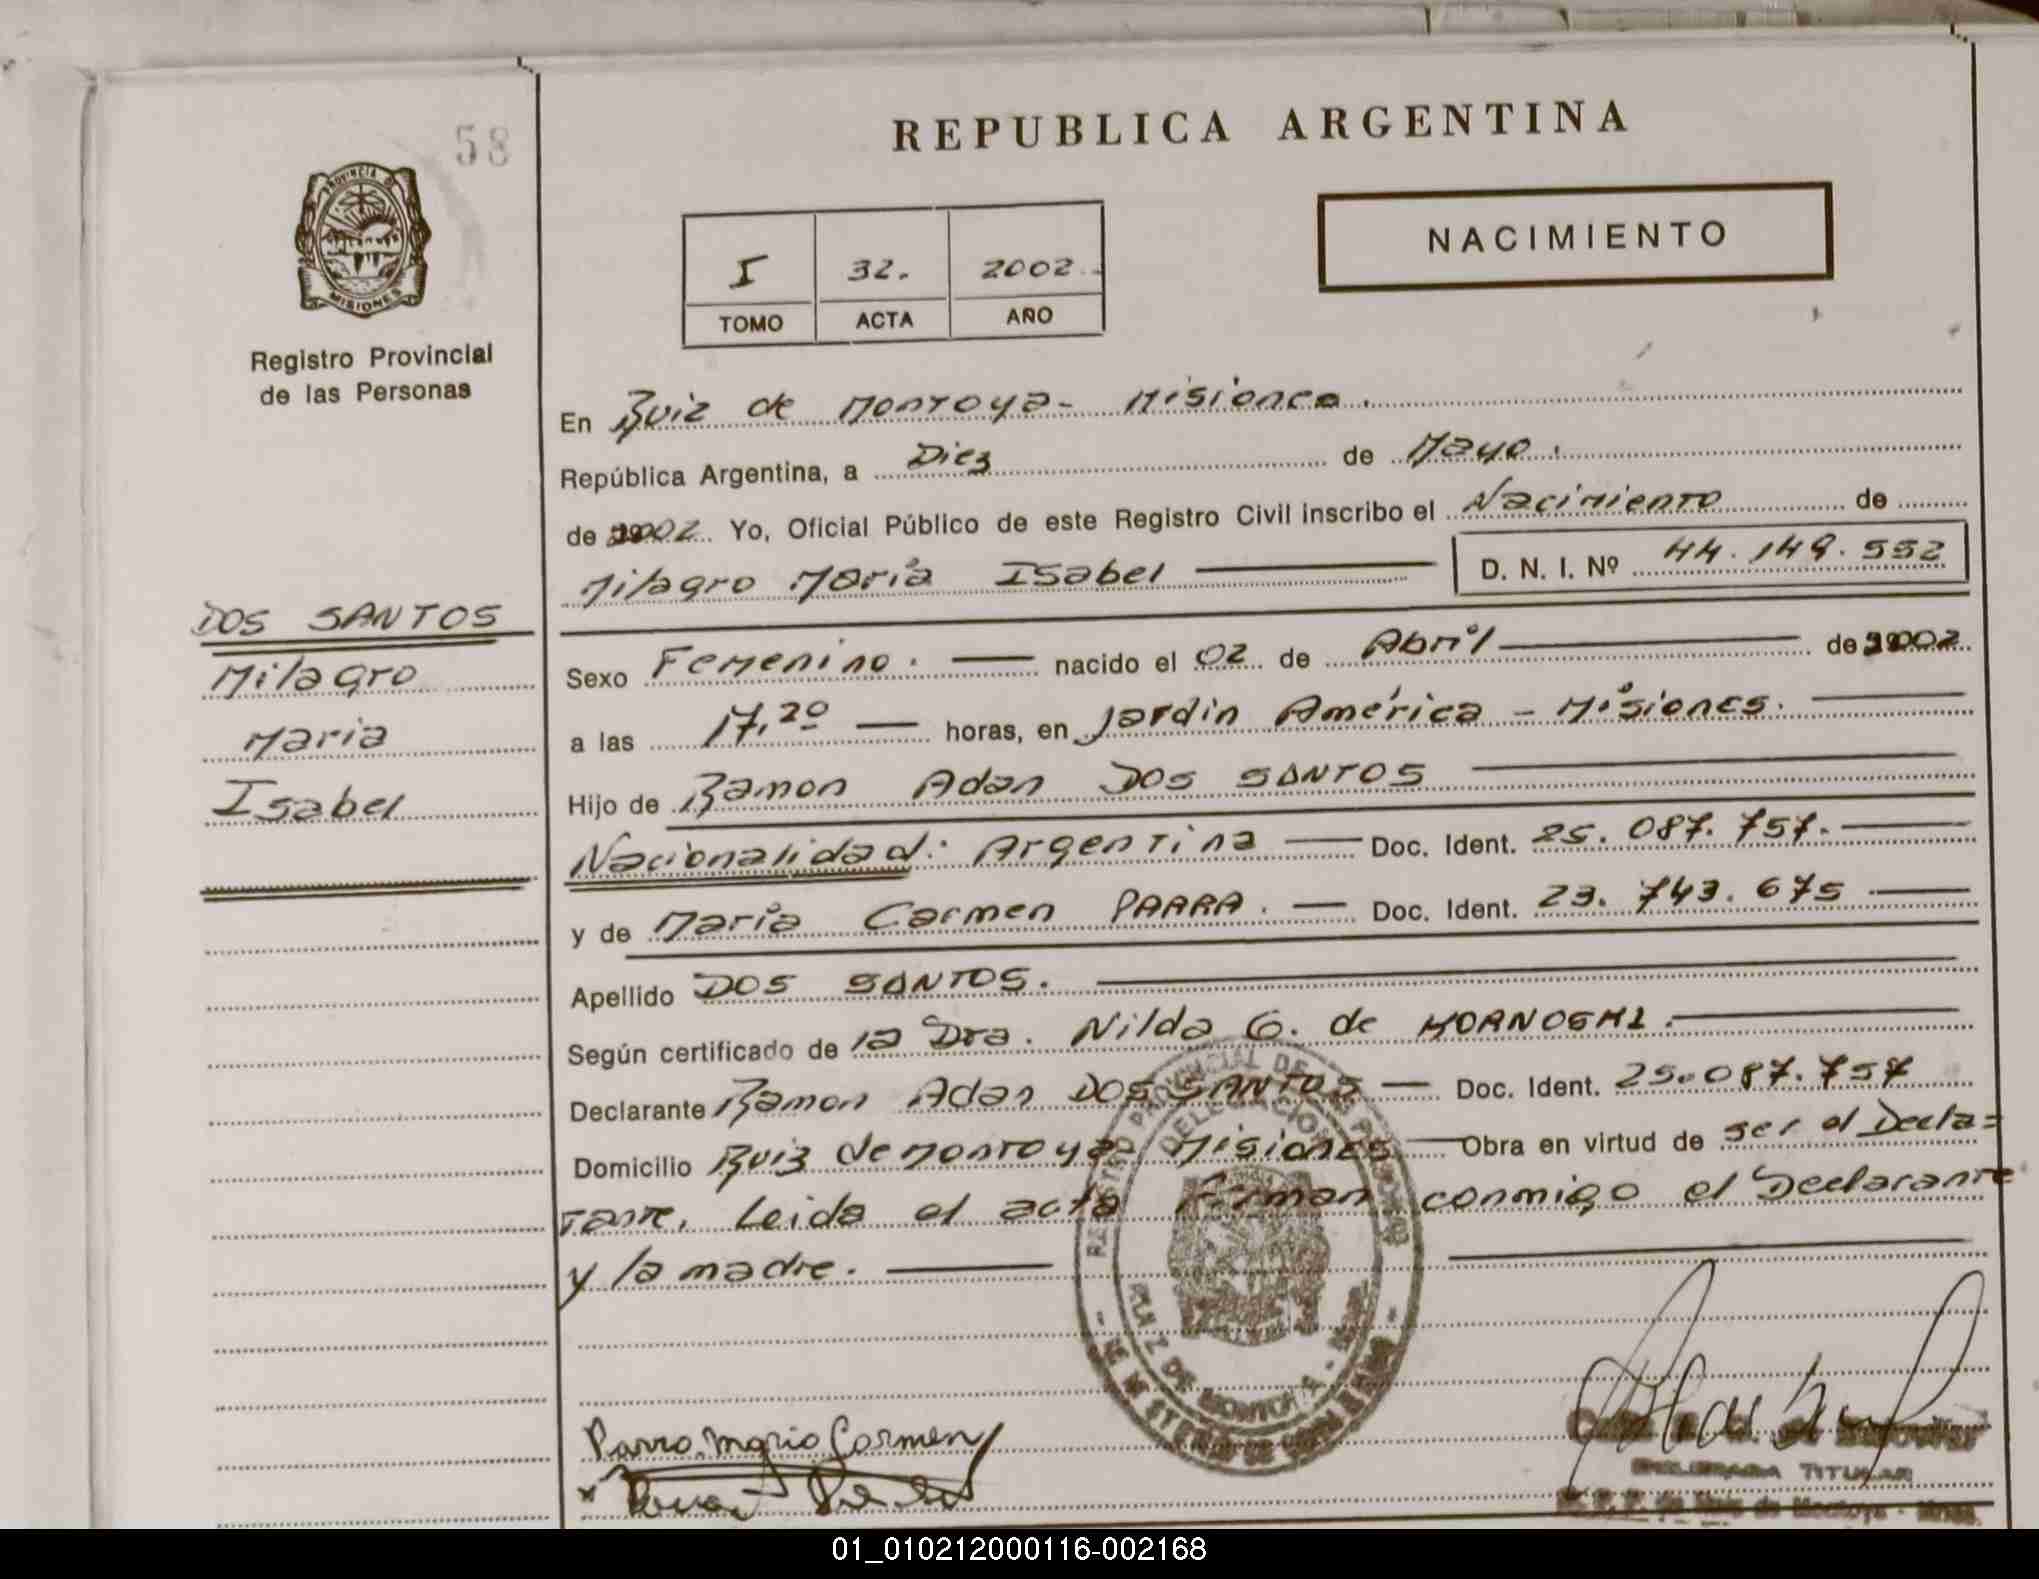 58
REPUBLICA ARGENTINA
PROVINCIA DE
MISIONES
Registro Provincial
de las Personas
I 32. 2002
TOMO ACTA AÑO
NACIMIENTO
En Ruiz de Montoya - Misiones.
República Argentina, a Diez de Mayo.
de 2002 Yo, Oficial Público de este Registro Civil inscribo el Nacimiento de
Milagro María Isabel D. N. I. Nº 44.149.552
DOS SANTOS
Milagro
Maria
Isabel
Sexo Femenino. nacido el 02 de Abril de 2002
a las 17,20 horas, en Jardín América - Misiones.
Hijo de Ramon Adan DOS SANTOS
Nacionalidad: Argentina Doc. Ident. 25.087.757.
y de María Carmen PARRA. Doc. Ident. 23.743.675
Apellido DOS SANTOS.
Según certificado de la Dra. Nilda G. de
Declarante Ramon Adan DOS SANTOS Doc. Ident. 25.087.757
Domicilio Ruiz de Montoya Misiones Obra en virtud de ser el Decla=
rante. Leida el acta Firman conmigo el Declarante
y la madre.
REGISTRO PROVINCIAL DE LAS PERSONAS
DELEGACION
RUIZ DE MONTOYA
Parra Maria Carmen
DELEGADA TITULAR
de Ruiz de Montoya - Mnes.
01_010212000116-002168